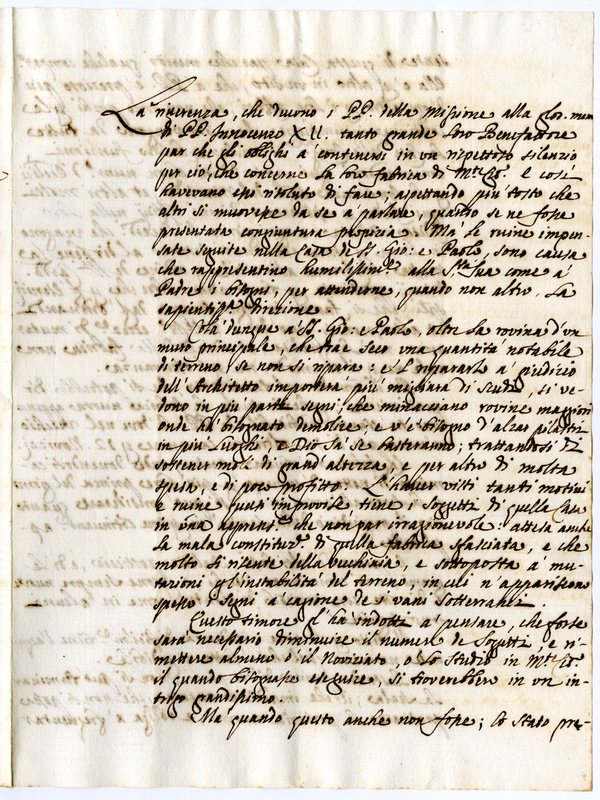 La riverenza, che devono i PP. della Missione alla glor. mem.
di PP. Innocenzo XII. tanto grande loro Benefattore
par che gli oblighi a' contenersi in un rispettoso silenzio
per ciò, che concerne la loro fabrica di M.te Cit.o E così
havevano essi risoluto di fare; aspettando più tosto che
altri si movesse da se a' parlare, quando se ne fosse
presentata congiuntura propizia. Ma le ruine impen-
sate seguite nella Casa de SS. Gio: e Paolo, sono causa
che rappresentino humilissim.te alla S.tà Sua come a'
Padre i bisogni, per attenderne, quando non altro, la
sapientiss.a direzione.
Colà dunque a' SS. Gio: e Paolo, oltre la rovina d'un
muro principale, che trae seco una quantità notabile
di terreno se non si ripara: e 'l ripararlo a' giudizio
dell'Architetto importerà più migliara di scudi, si ve-
dono in più parti segni, che minacciano rovine maggiori
onde hà bisognato demolire: e v'è bisogno d'alzar pilastri
in più luoghi, e Dio sà se basteranno; trattandosi di
sostener mole di grand'altezza, e per altro di molta
spesa, e di poco profitto: L'haver visti tanti motivi
e ruine quasi improvise tiene i soggetti di quella Casa
in una apprens.e che non par irrazionevole: attesa anche
la mala constituz.e di quella fabrica sfasciata, e che
molto si risente della vecchiaia, e sottoposta a' mu-
tazioni gl'instabilità del terreno, in cui n'appariscono
spesso i segni a' cagione de i vani sotterranei.
Questo timore gl'hà indotti a' pensare, che forse
sarà necessario diminuire il numero de Sogetti, e ri-
mettere almeno ò il Noviziato, ò lo Studio in M.te Cit.o
il quando bisognasse eseguire, si troverebbero in un in-
trigo grandissimo.
Ma quando questo anche non fosse; lo stato pre-